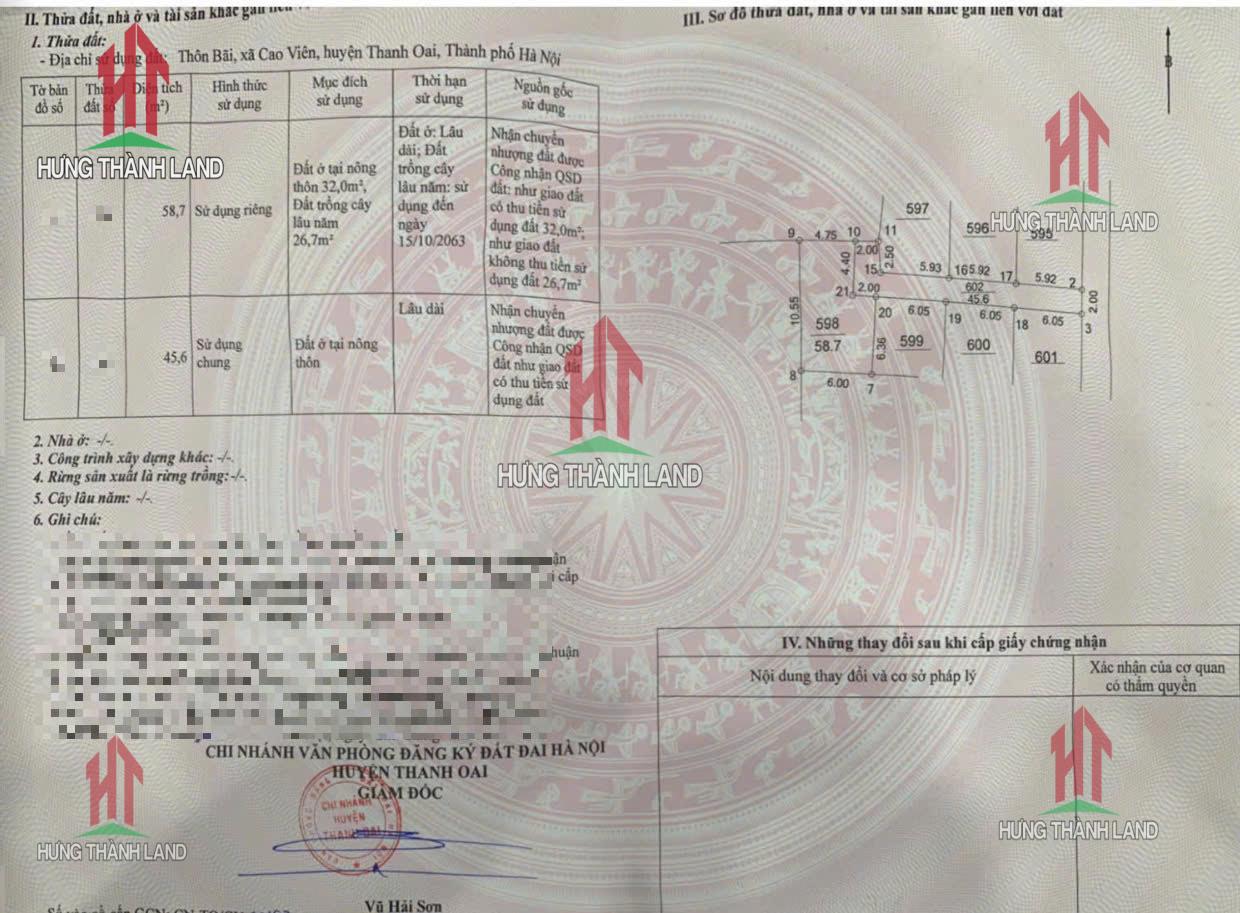 II. Thửa đất, nhà ở và tài sản khác gắn liền
1. Thửa đất:
- Địa chỉ sử dụng đất: Thôn Bãi, xã Cao Viên, huyện Thanh Oai, Thành phố Hà Nội
Tờ bản đồ số
Thửa đất số
Diện tích (m²)
Hình thức sử dụng
Mục đích sử dụng
Thời hạn sử dụng
Nguồn gốc sử dụng
58,7
Sử dụng riêng
Đất ở tại nông
thôn 32,0m²,
Đất trồng cây
lâu năm
26,7m²
Đất ở: Lâu
dài; Đất
trồng cây
lâu năm: sử
dụng đến
ngày
15/10/2063
Nhận chuyển
nhượng đất được
Công nhận QSD
đất: như giao đất
có thu tiền sử
dụng đất 32,0m²;
như giao đất
không thu tiền sử
dụng đất 26,7m²
45,6
Sử dụng
chung
Đất ở tại nông
thôn
Lâu dài
Nhận chuyển
nhượng đất được
Công nhận QSD
đất như giao đất
có thu tiền sử
dụng đất
2. Nhà ở: -/-.
3. Công trình xây dựng khác: -/-.
4. Rừng sản xuất là rừng trồng: -/-.
5. Cây lâu năm: -/-.
6. Ghi chú:
i cấp
CHI NHÁNH VĂN PHÒNG ĐĂNG KÝ ĐẤT ĐAI HÀ NỘI
HUYỆN THANH OAI
GIÁM ĐỐC
CHI NHÁNH
HUYỆN
THANH OAI
Vũ Hải Sơn
III. Sơ đồ thửa đất, nhà ở và tài sản khác gắn liền với đất
B
597
596
595
9
4.75
10
11
2.00
2.50
4.40
15
5.93
16
5.92
17
5.92
2
602
45.6
2.00
21
2.00
20
6.05
19
6.05
18
6.05
3
10.55
598
58.7
6.36
599
600
601
8
6.00
7
IV. Những thay đổi sau khi cấp giấy chứng nhận
Nội dung thay đổi và cơ sở pháp lý
Xác nhận của cơ quan
có thẩm quyền
HƯNG THÀNH LAND
HƯNG THÀNH LAND
HƯNG THÀNH LAND
HƯNG THÀNH LAND
HƯNG THÀNH LAND